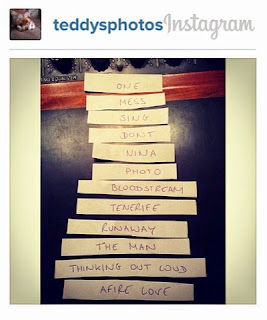 teddysphotos Instagram
ONE
MESS
SING
DONT
NINA
PHOTO
BLOODSTREAM
TENERIFE
RUNAWAY
THE MAN
THINKING OUT LOUD
AFIRE LOVE